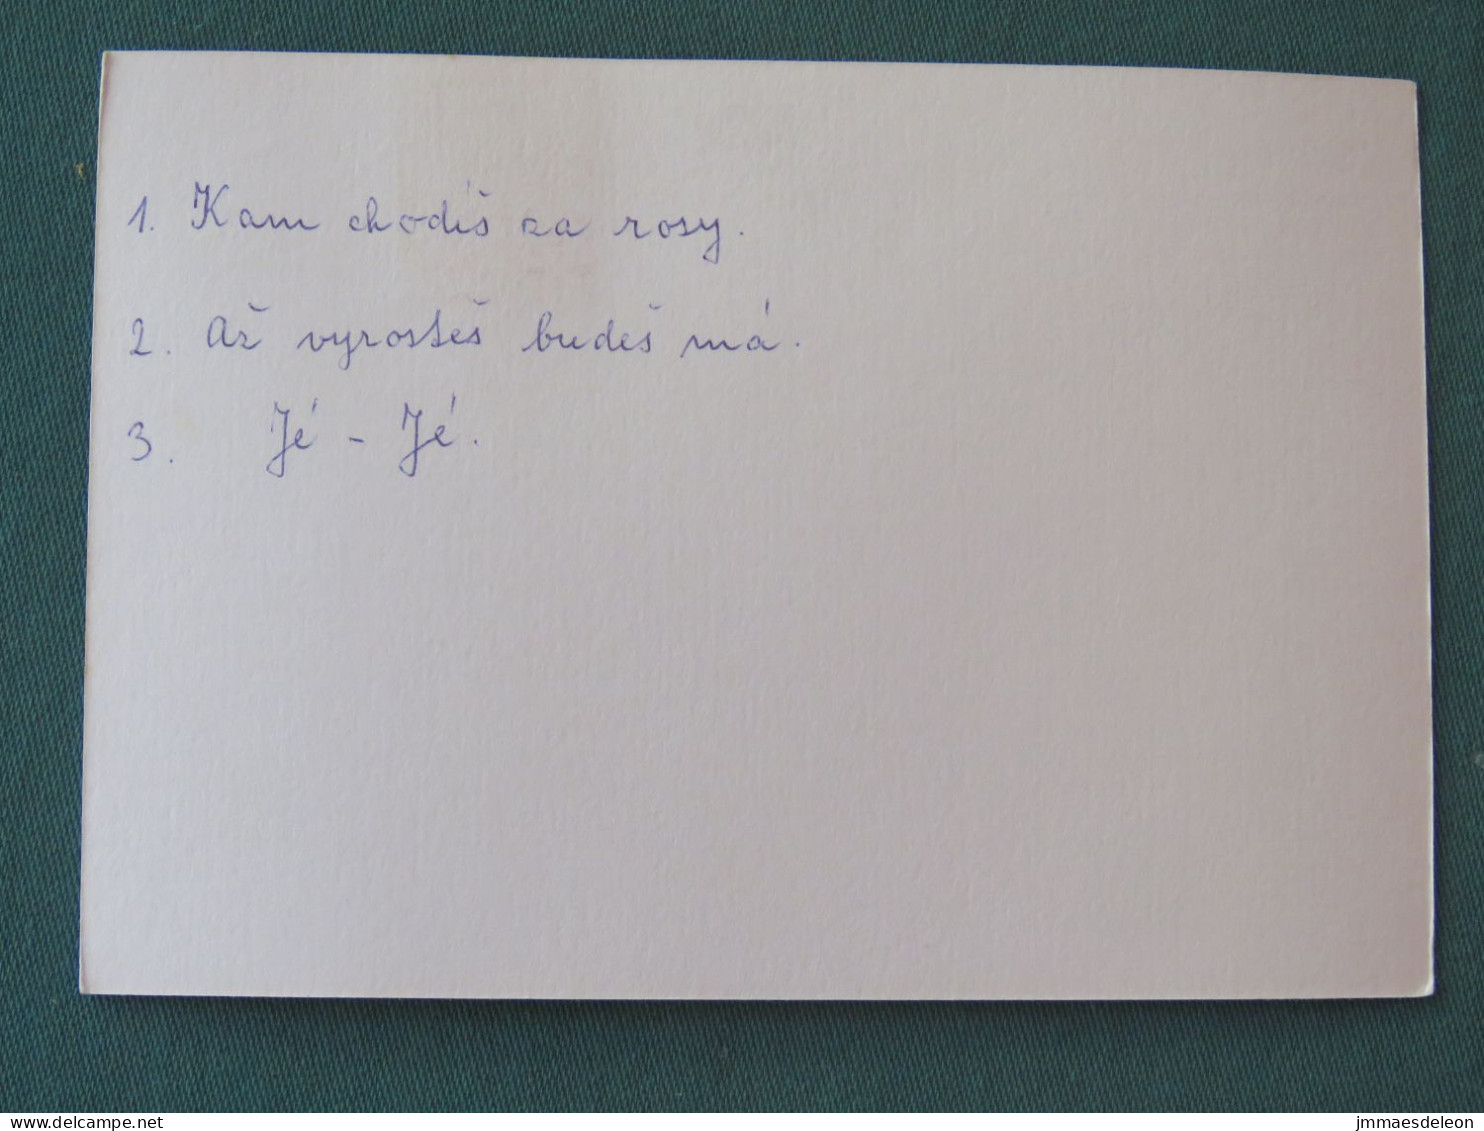 1. Kam chodíš za rosy.
2. Až vyrosteš budeš má.
3. Jé - Jé.
www.delcampe.net
jmmaesdeleon